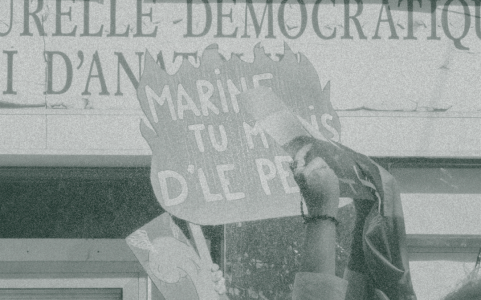 URELLE DÉMOCRATIQU
I D'ANAT
MARINE
TU M IS
D'LE PE